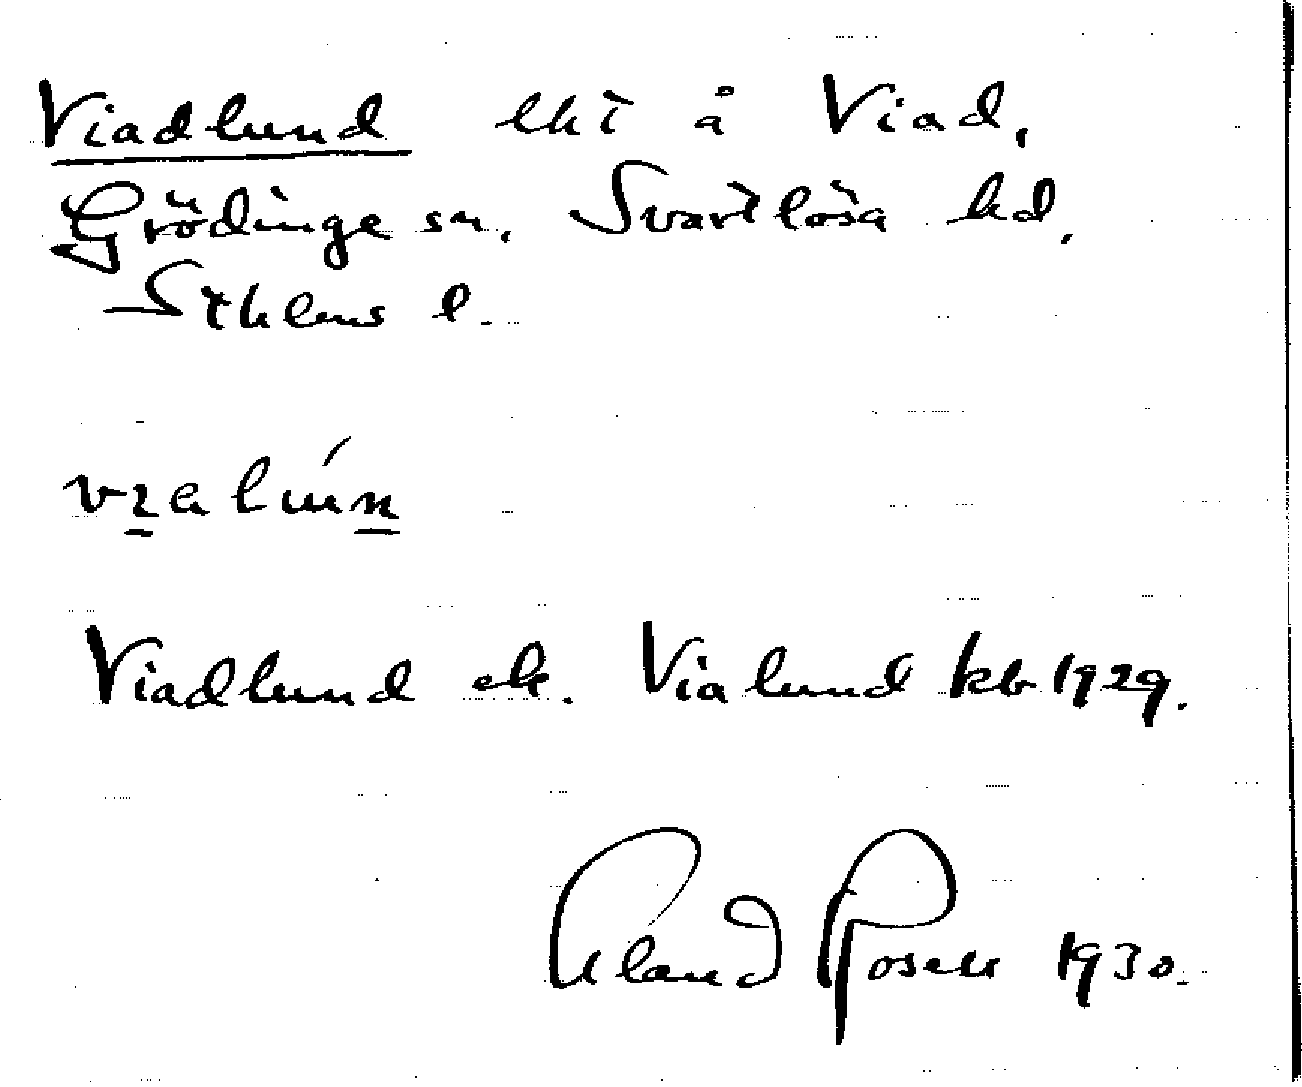 Viadlund lht å Viad,
Grödinge sn. Svartlösa hd,
Sthlms l.
Viadlund ek. Vialund kb 1929.
Erland Rosell 1930.